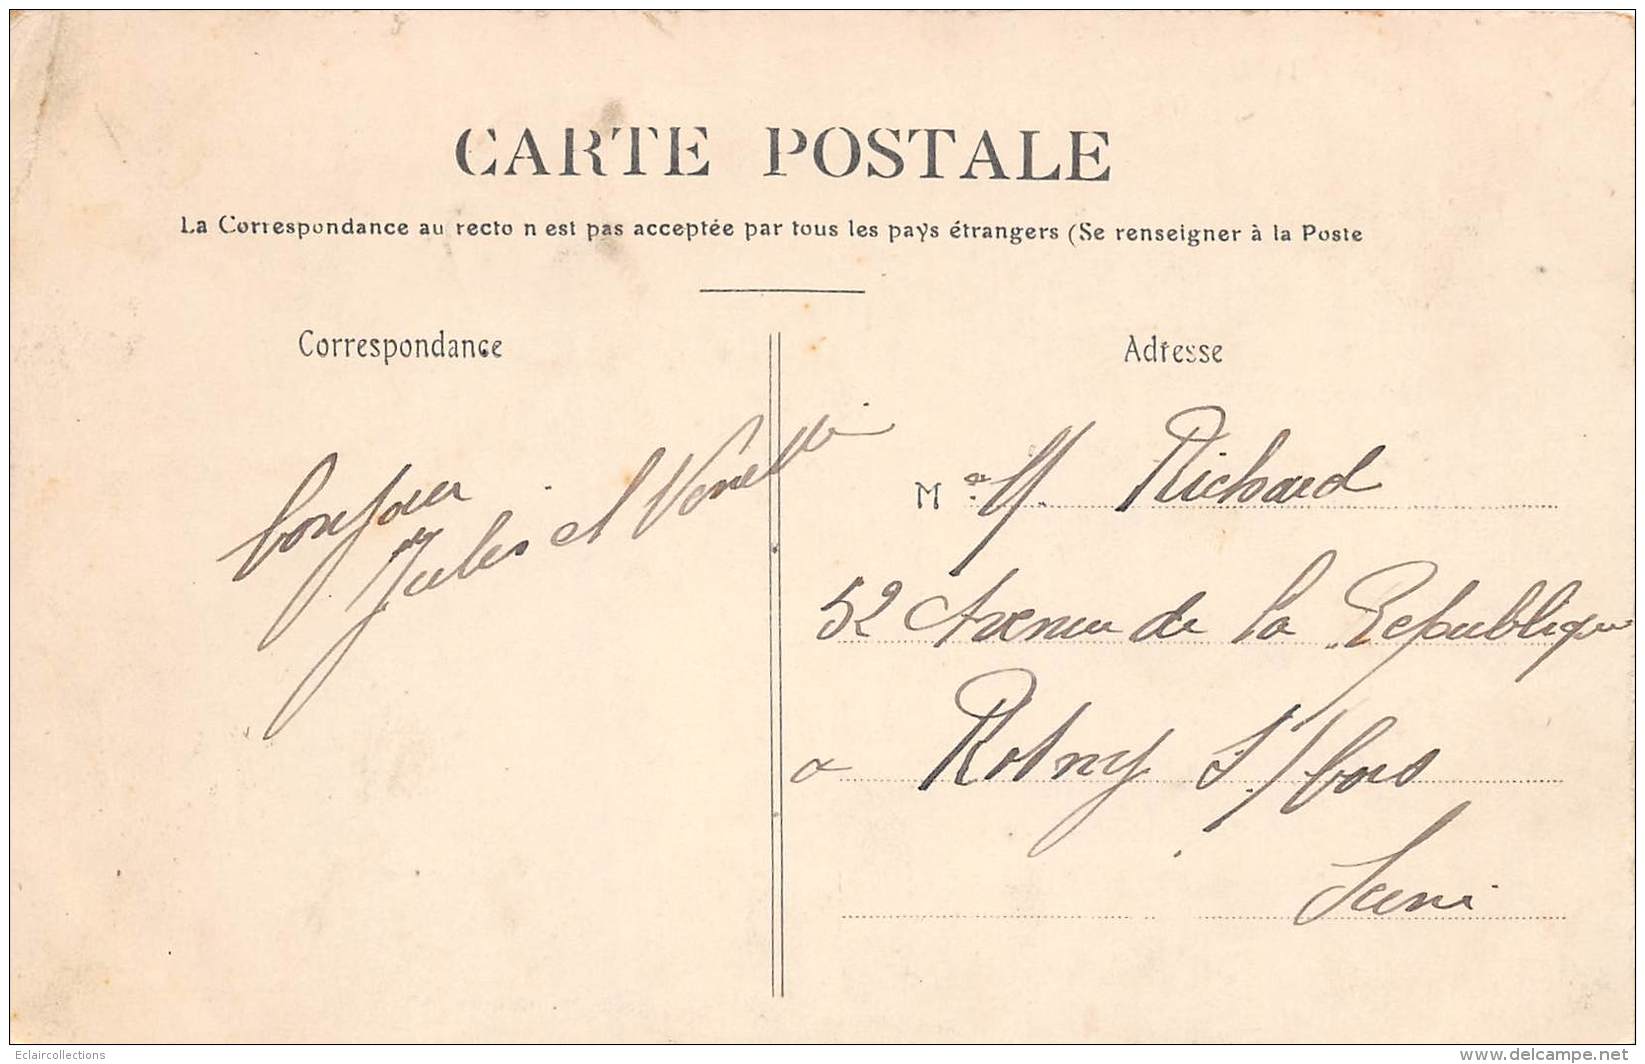 CARTE POSTALE
La Correspondance au recto n est pas acceptée par tous les pays étrangers (Se renseigner à la Poste
Correspondance
bonjour
Jules et
Adresse
M Richard
52 Avenue de la Republique
a Rosny S/ bois
Seine
Eclaircollections
www.delcampe.net